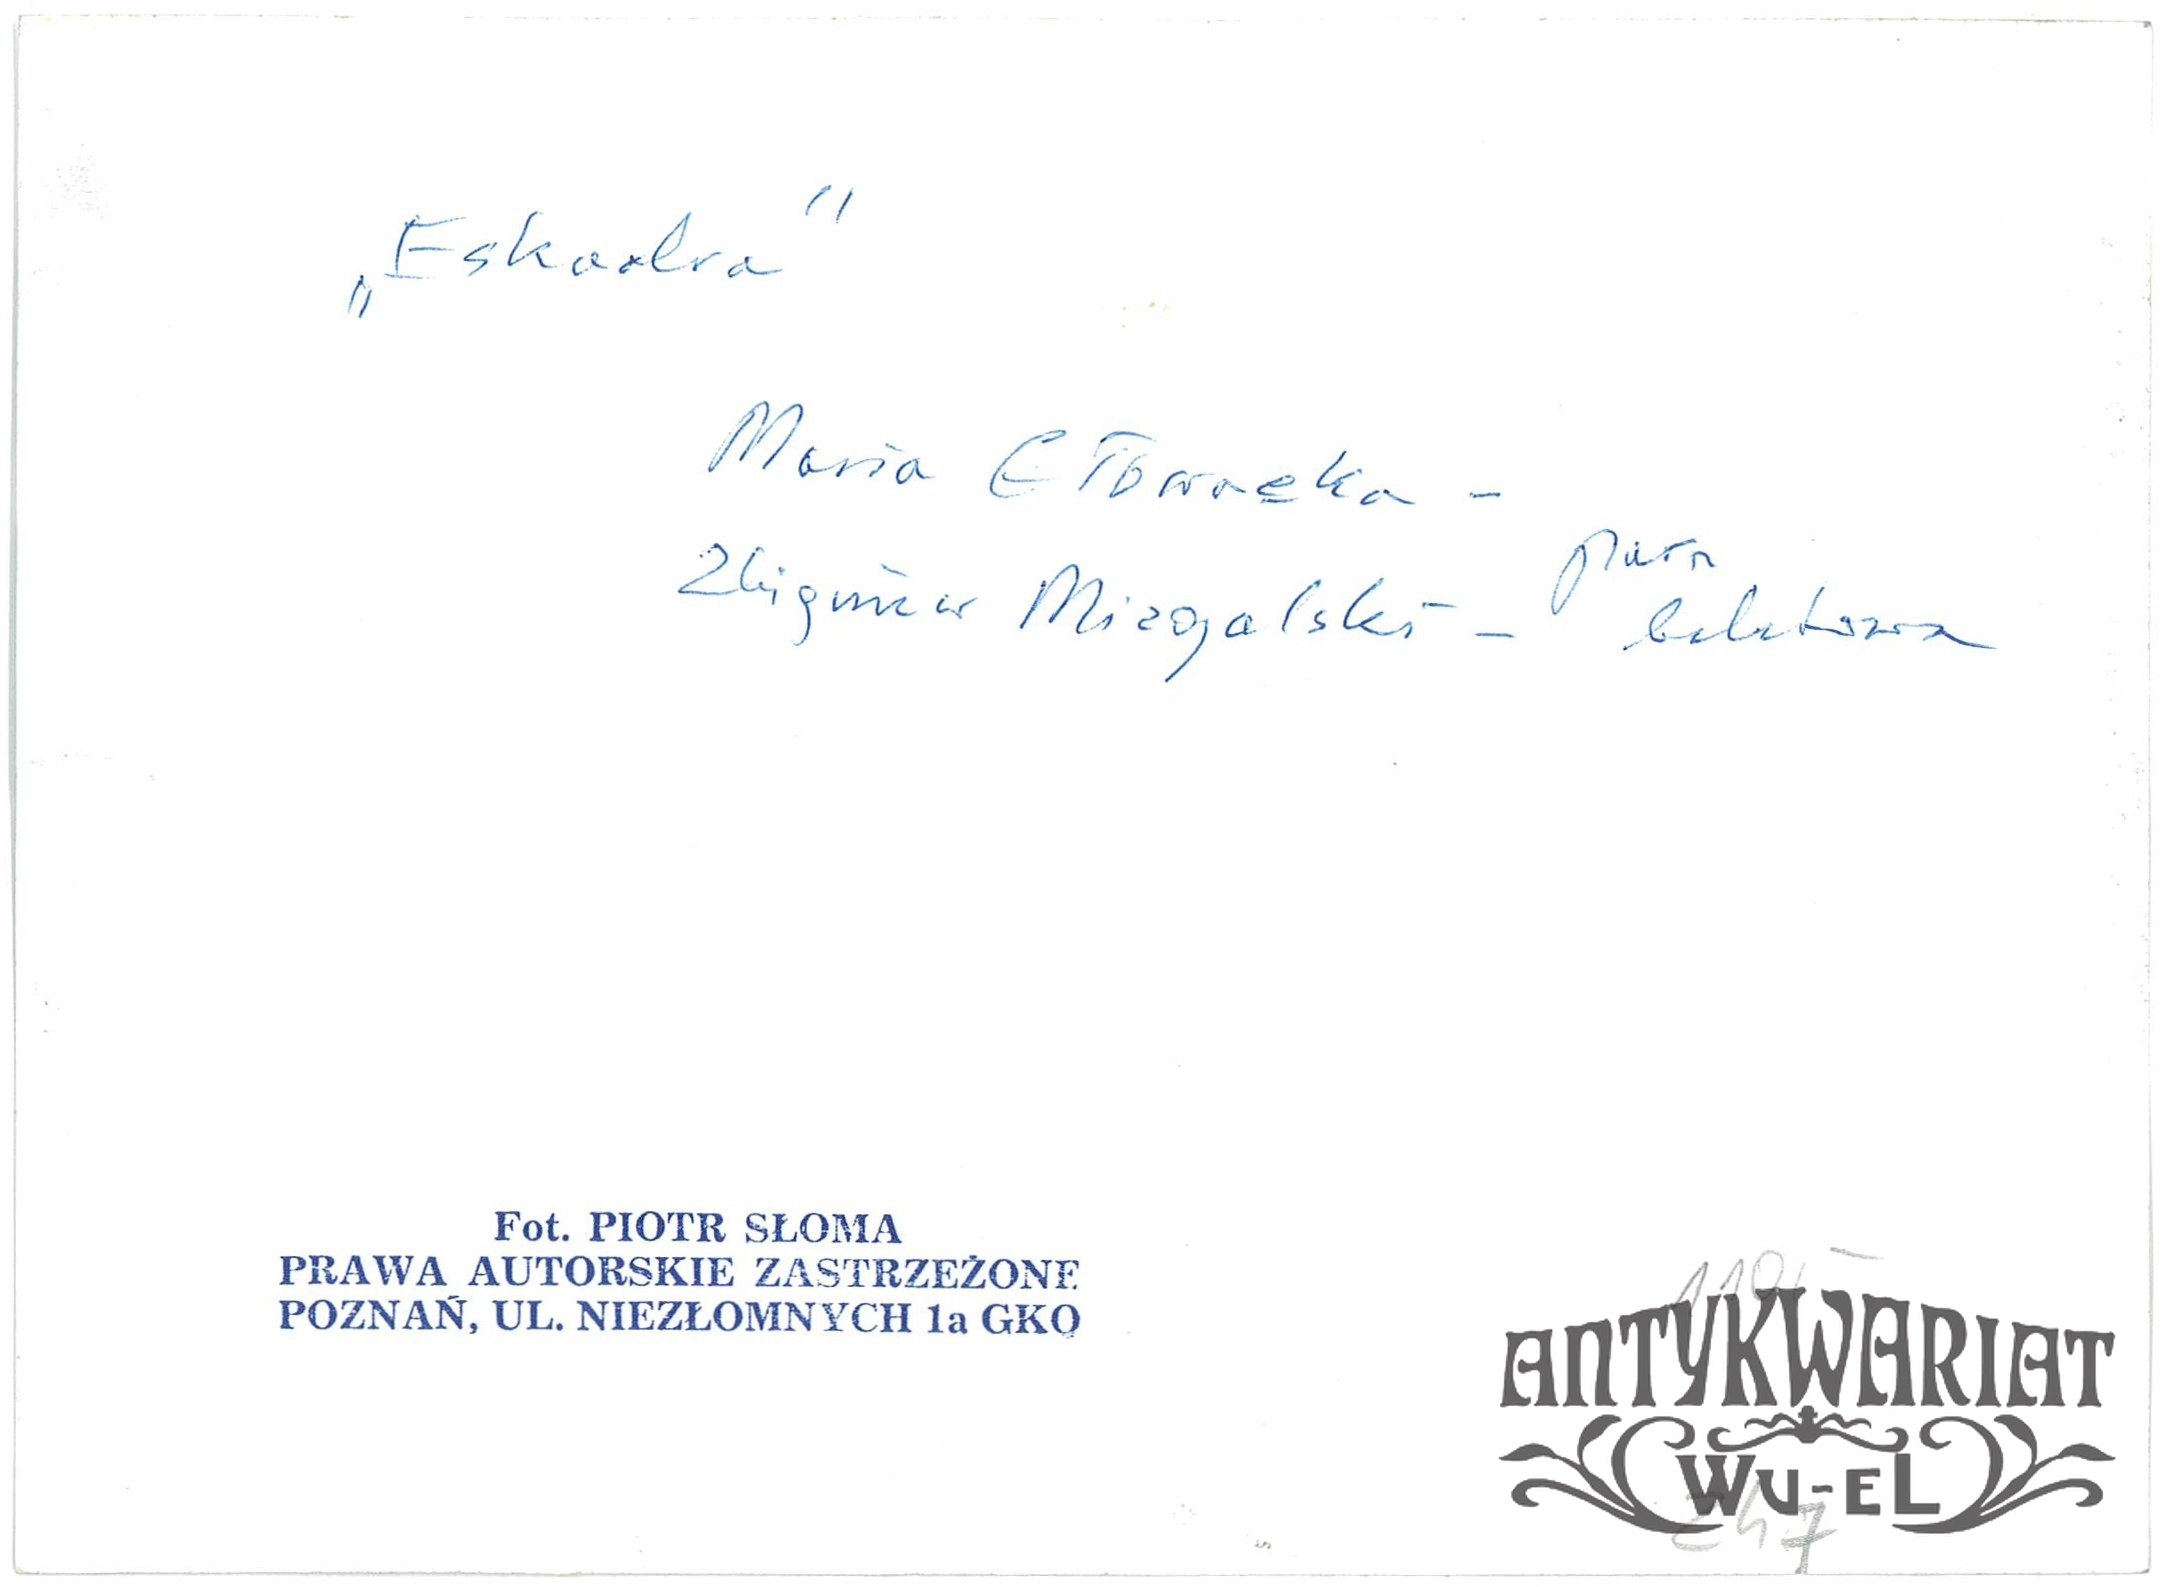 „Eskadra”
Maria Głowacka -
Zbigniew Misogalski - para
baletowa
Fot. PIOTR SŁOMA
PRAWA AUTORSKIE ZASTRZEŻONE
POZNAŃ, UL. NIEZŁOMNYCH 1a GKO
ANTYKWARIAT
WU-EL